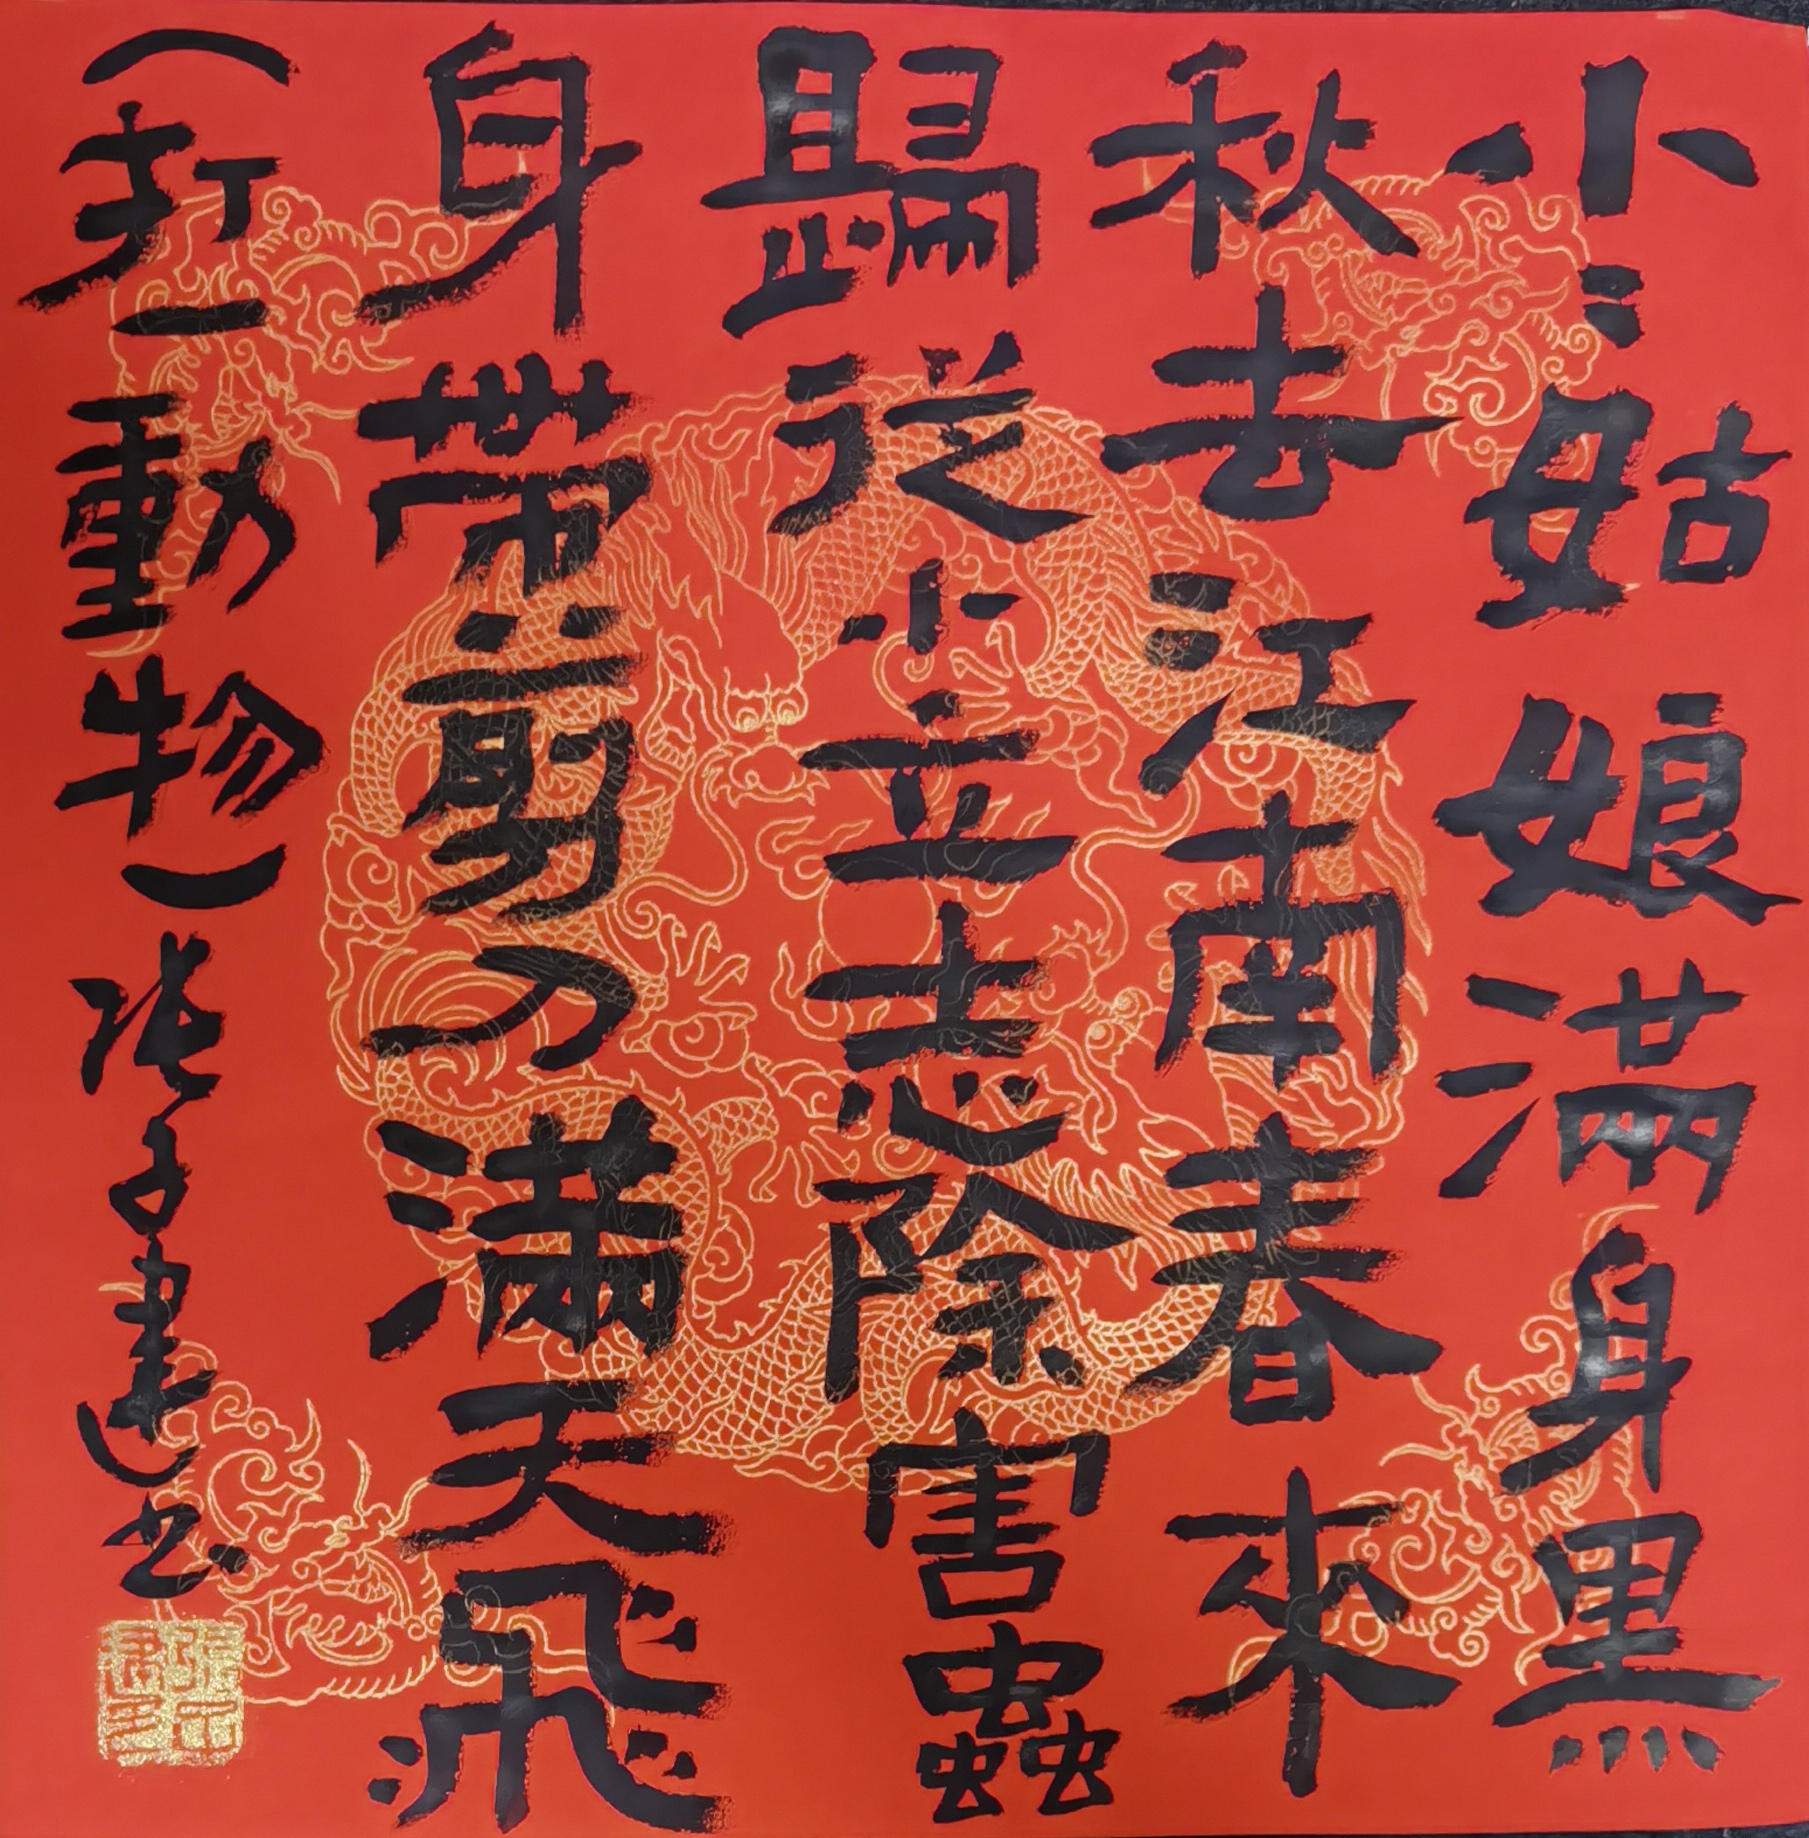 小〻姑娘滿身黑
秋去江南春來
歸從小立志除害蟲
身帶剪刀滿天飛
（打一動物）張子建书